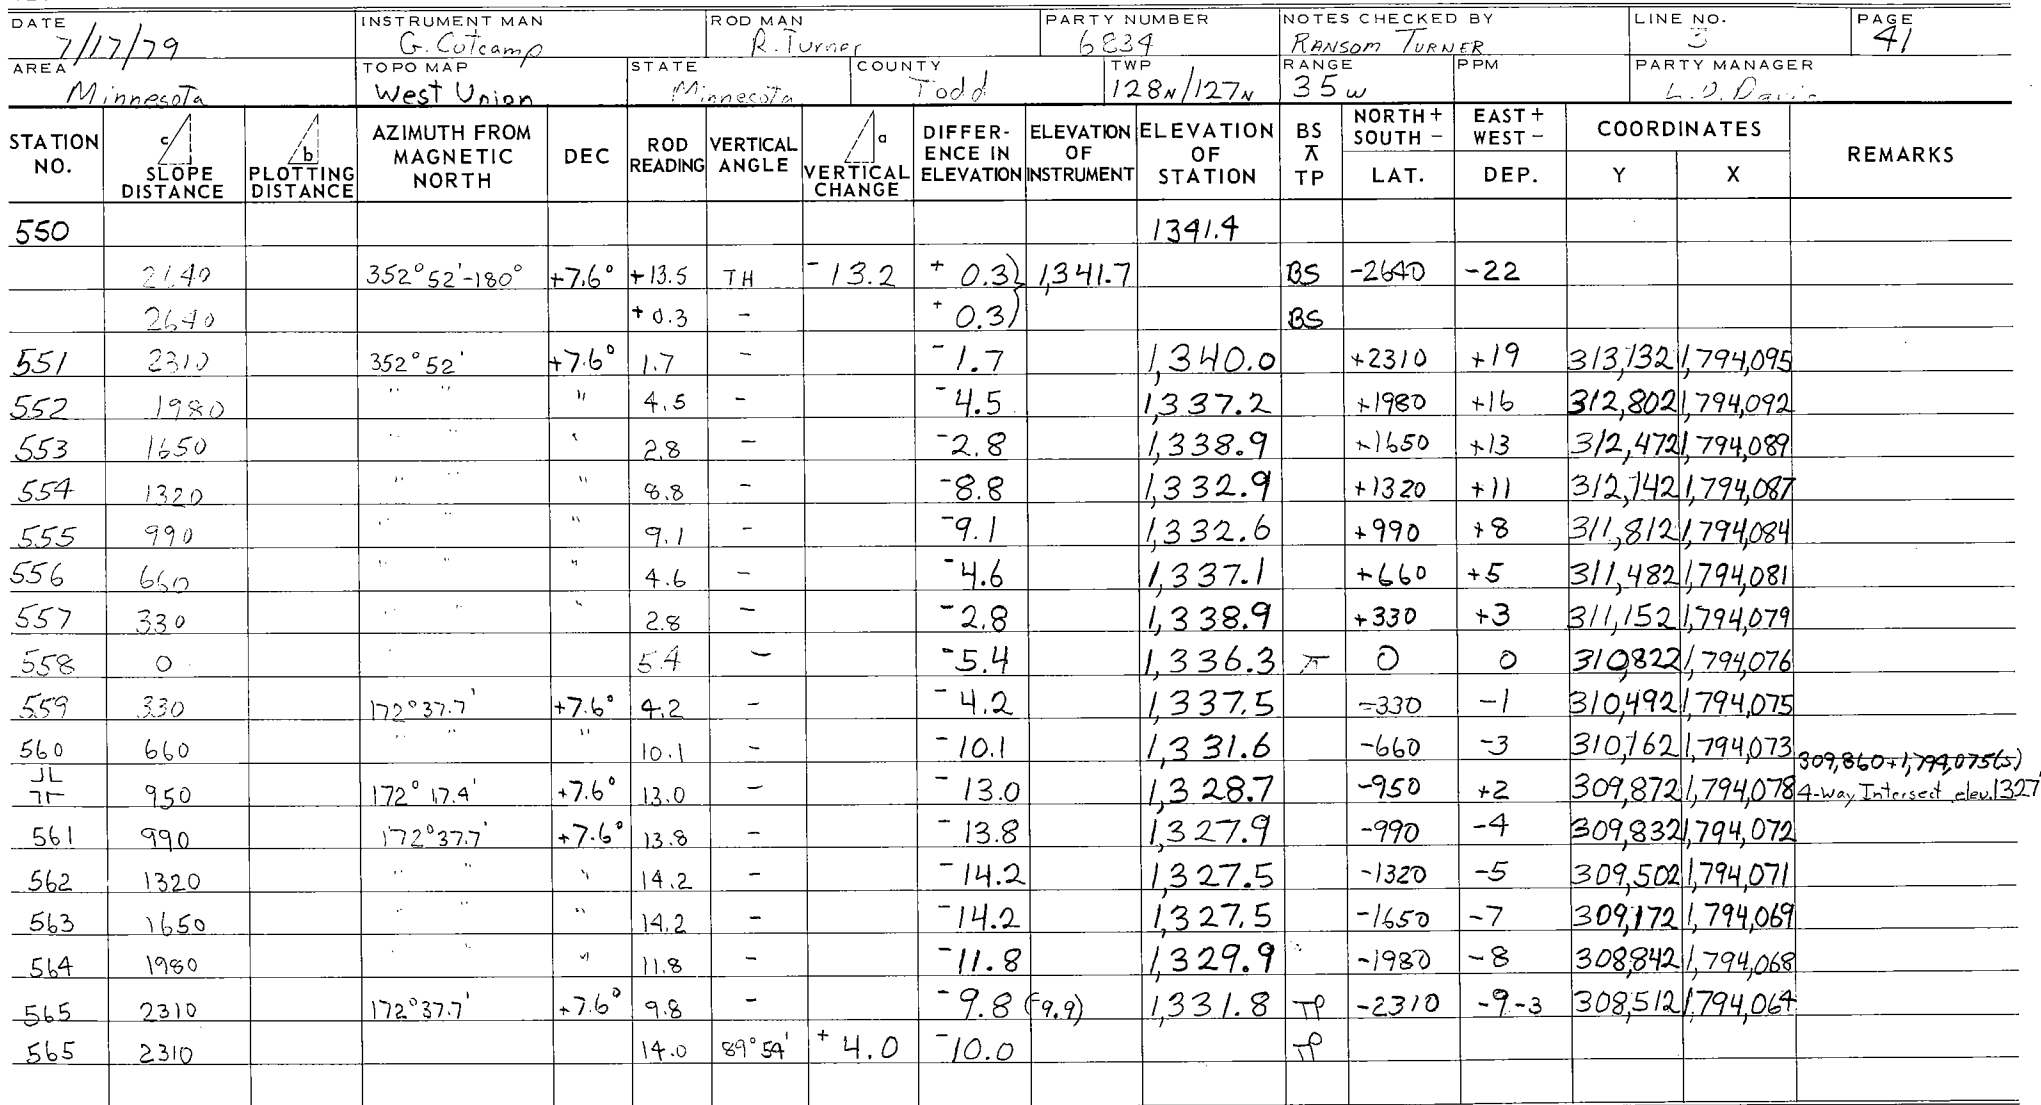 DATE INSTRUMENT MAN ROD MAN PARTY NUMBER NOTES CHECKED BY LINE NO. PAGE
7/17/79 G. Cutcamp R. Turner 6834 RANSOM TURNER 3 41
AREA TOPO MAP STATE COUNTY TWP RANGE PPM PARTY MANAGER
Minnesota West Union Minnesota Todd 128N/127N 35W L.D. Davis
STATION NO. c SLOPE DISTANCE b PLOTTING DISTANCE AZIMUTH FROM MAGNETIC NORTH DEC ROD READING VERTICAL ANGLE a VERTICAL CHANGE DIFFERENCE IN ELEVATION ELEVATION OF INSTRUMENT ELEVATION OF STATION BS ⊼ TP NORTH + SOUTH − LAT. EAST + WEST − DEP. COORDINATES Y X REMARKS
550 1341.4
2640 352°52'-180° +7.6° +13.5 TH -13.2 +0.3) 1,341.7 BS -2640 -22
2640 +0.3 - +0.3) BS
551 2310 352°52' +7.6° 1.7 - -1.7 1,340.0 +2310 +19 313,132 1,794,095
552 1980 " " " 4.5 - -4.5 1,337.2 +1980 +16 312,802 1,794,092
553 1650 " " " 2.8 - -2.8 1,338.9 +1650 +13 312,472 1,794,089
554 1320 " " " 8.8 - -8.8 1,332.9 +1320 +11 312,142 1,794,087
555 990 " " " 9.1 - -9.1 1,332.6 +990 +8 311,812 1,794,084
556 660 " " " 4.6 - -4.6 1,337.1 +660 +5 311,482 1,794,081
557 330 " " " 2.8 - -2.8 1,338.9 +330 +3 311,152 1,794,079
558 0 " 5.4 - -5.4 1,336.3 ⊼ 0 0 310,822 1,794,076
559 330 172°37.7' +7.6° 4.2 - -4.2 1,337.5 -330 -1 310,492 1,794,075
560 660 " " " 10.1 - -10.1 1,331.6 -660 -3 310,162 1,794,073
309,860+1,794,075(s)
950 172°17.4' +7.6° 13.0 - -13.0 1,328.7 -950 +2 309,872 1,794,078 4-way Intersect elev. 1327'
561 990 172°37.7' +7.6° 13.8 - -13.8 1,327.9 -990 -4 309,832 1,794,072
562 1320 " " " 14.2 - -14.2 1,327.5 -1320 -5 309,502 1,794,071
563 1650 " " " 14.2 - -14.2 1,327.5 -1650 -7 309,172 1,794,069
564 1980 " " " 11.8 - -11.8 1,329.9 -1980 -8 308,842 1,794,068
565 2310 172°37.7' +7.6° 9.8 - -9.8 (-9.9) 1,331.8 TP -2310 -9-3 308,512 1,794,064
565 2310 14.0 89°54' +4.0 -10.0 TP